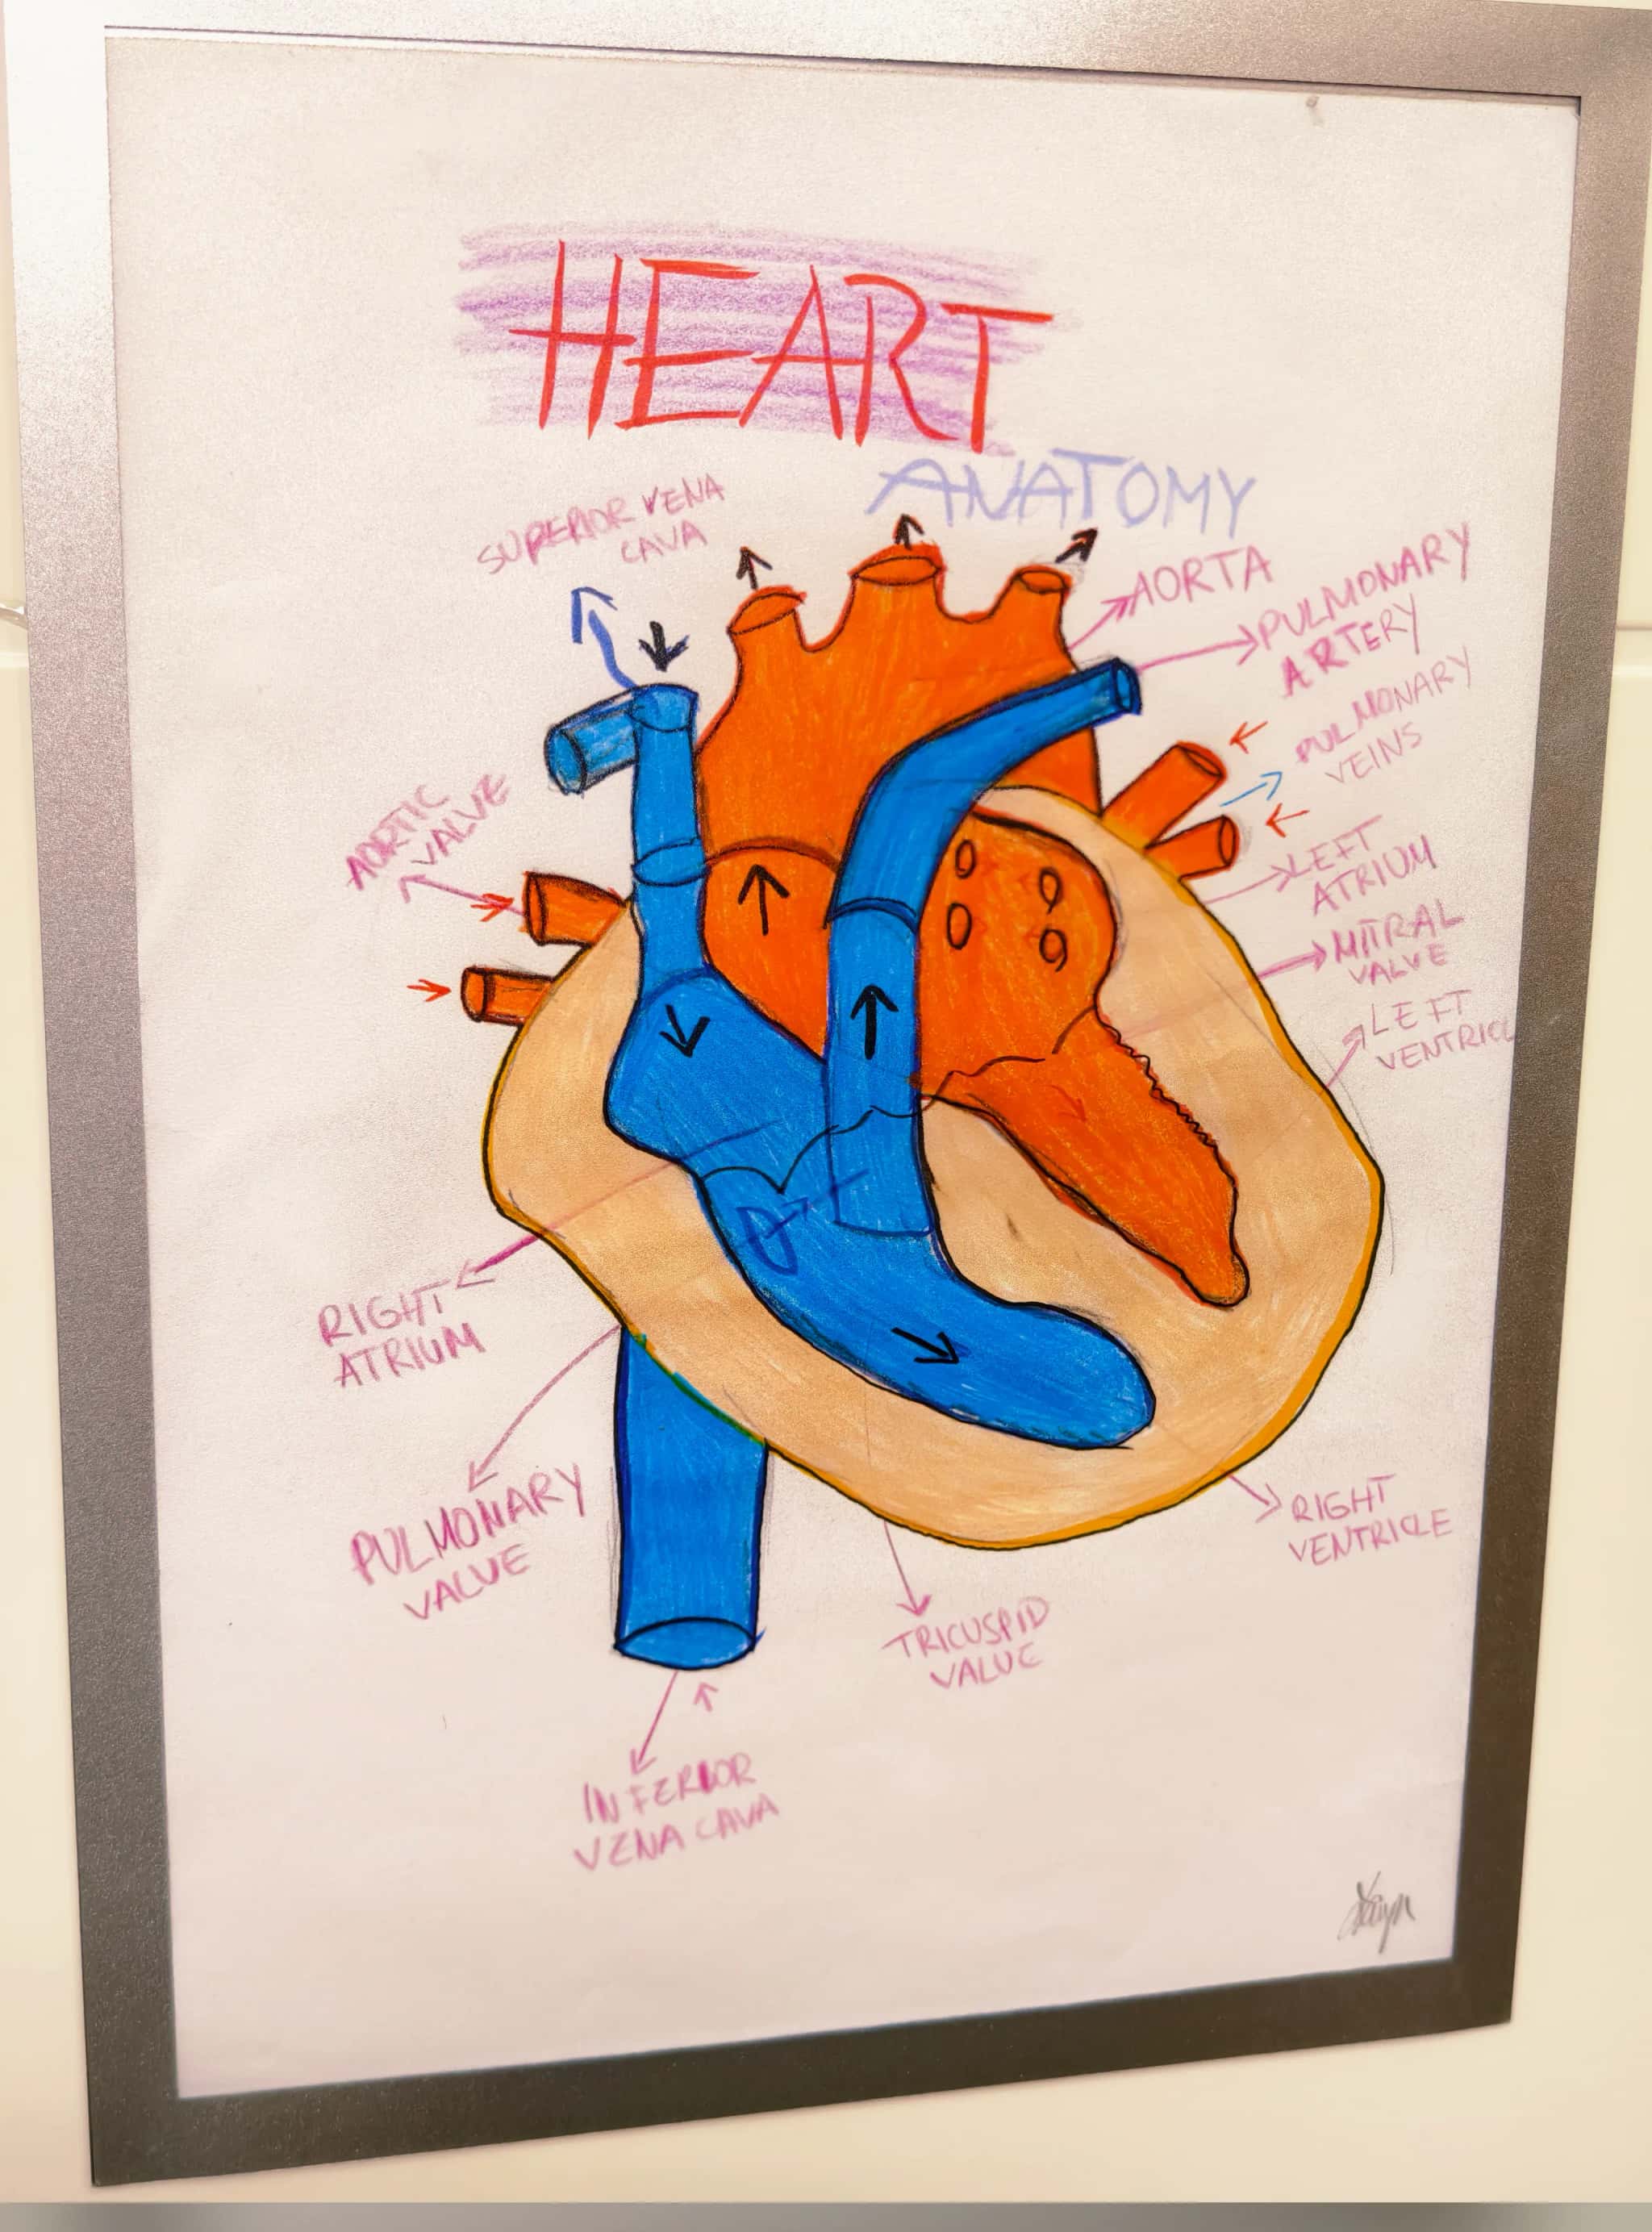 HEART
ANATOMY
SUPERIOR VENA
CAVA
AORTA
PULMONARY
ARTERY
PULMONARY
VEINS
AORTIC
VALVE
LEFT
ATRIUM
MITRAL
VALVE
LEFT
VENTRICL
RIGHT
ATRIUM
PULMONARY
VALUE
RIGHT
VENTRICLE
TRICUSPID
VALUE
INFERIOR
VENA CAVA